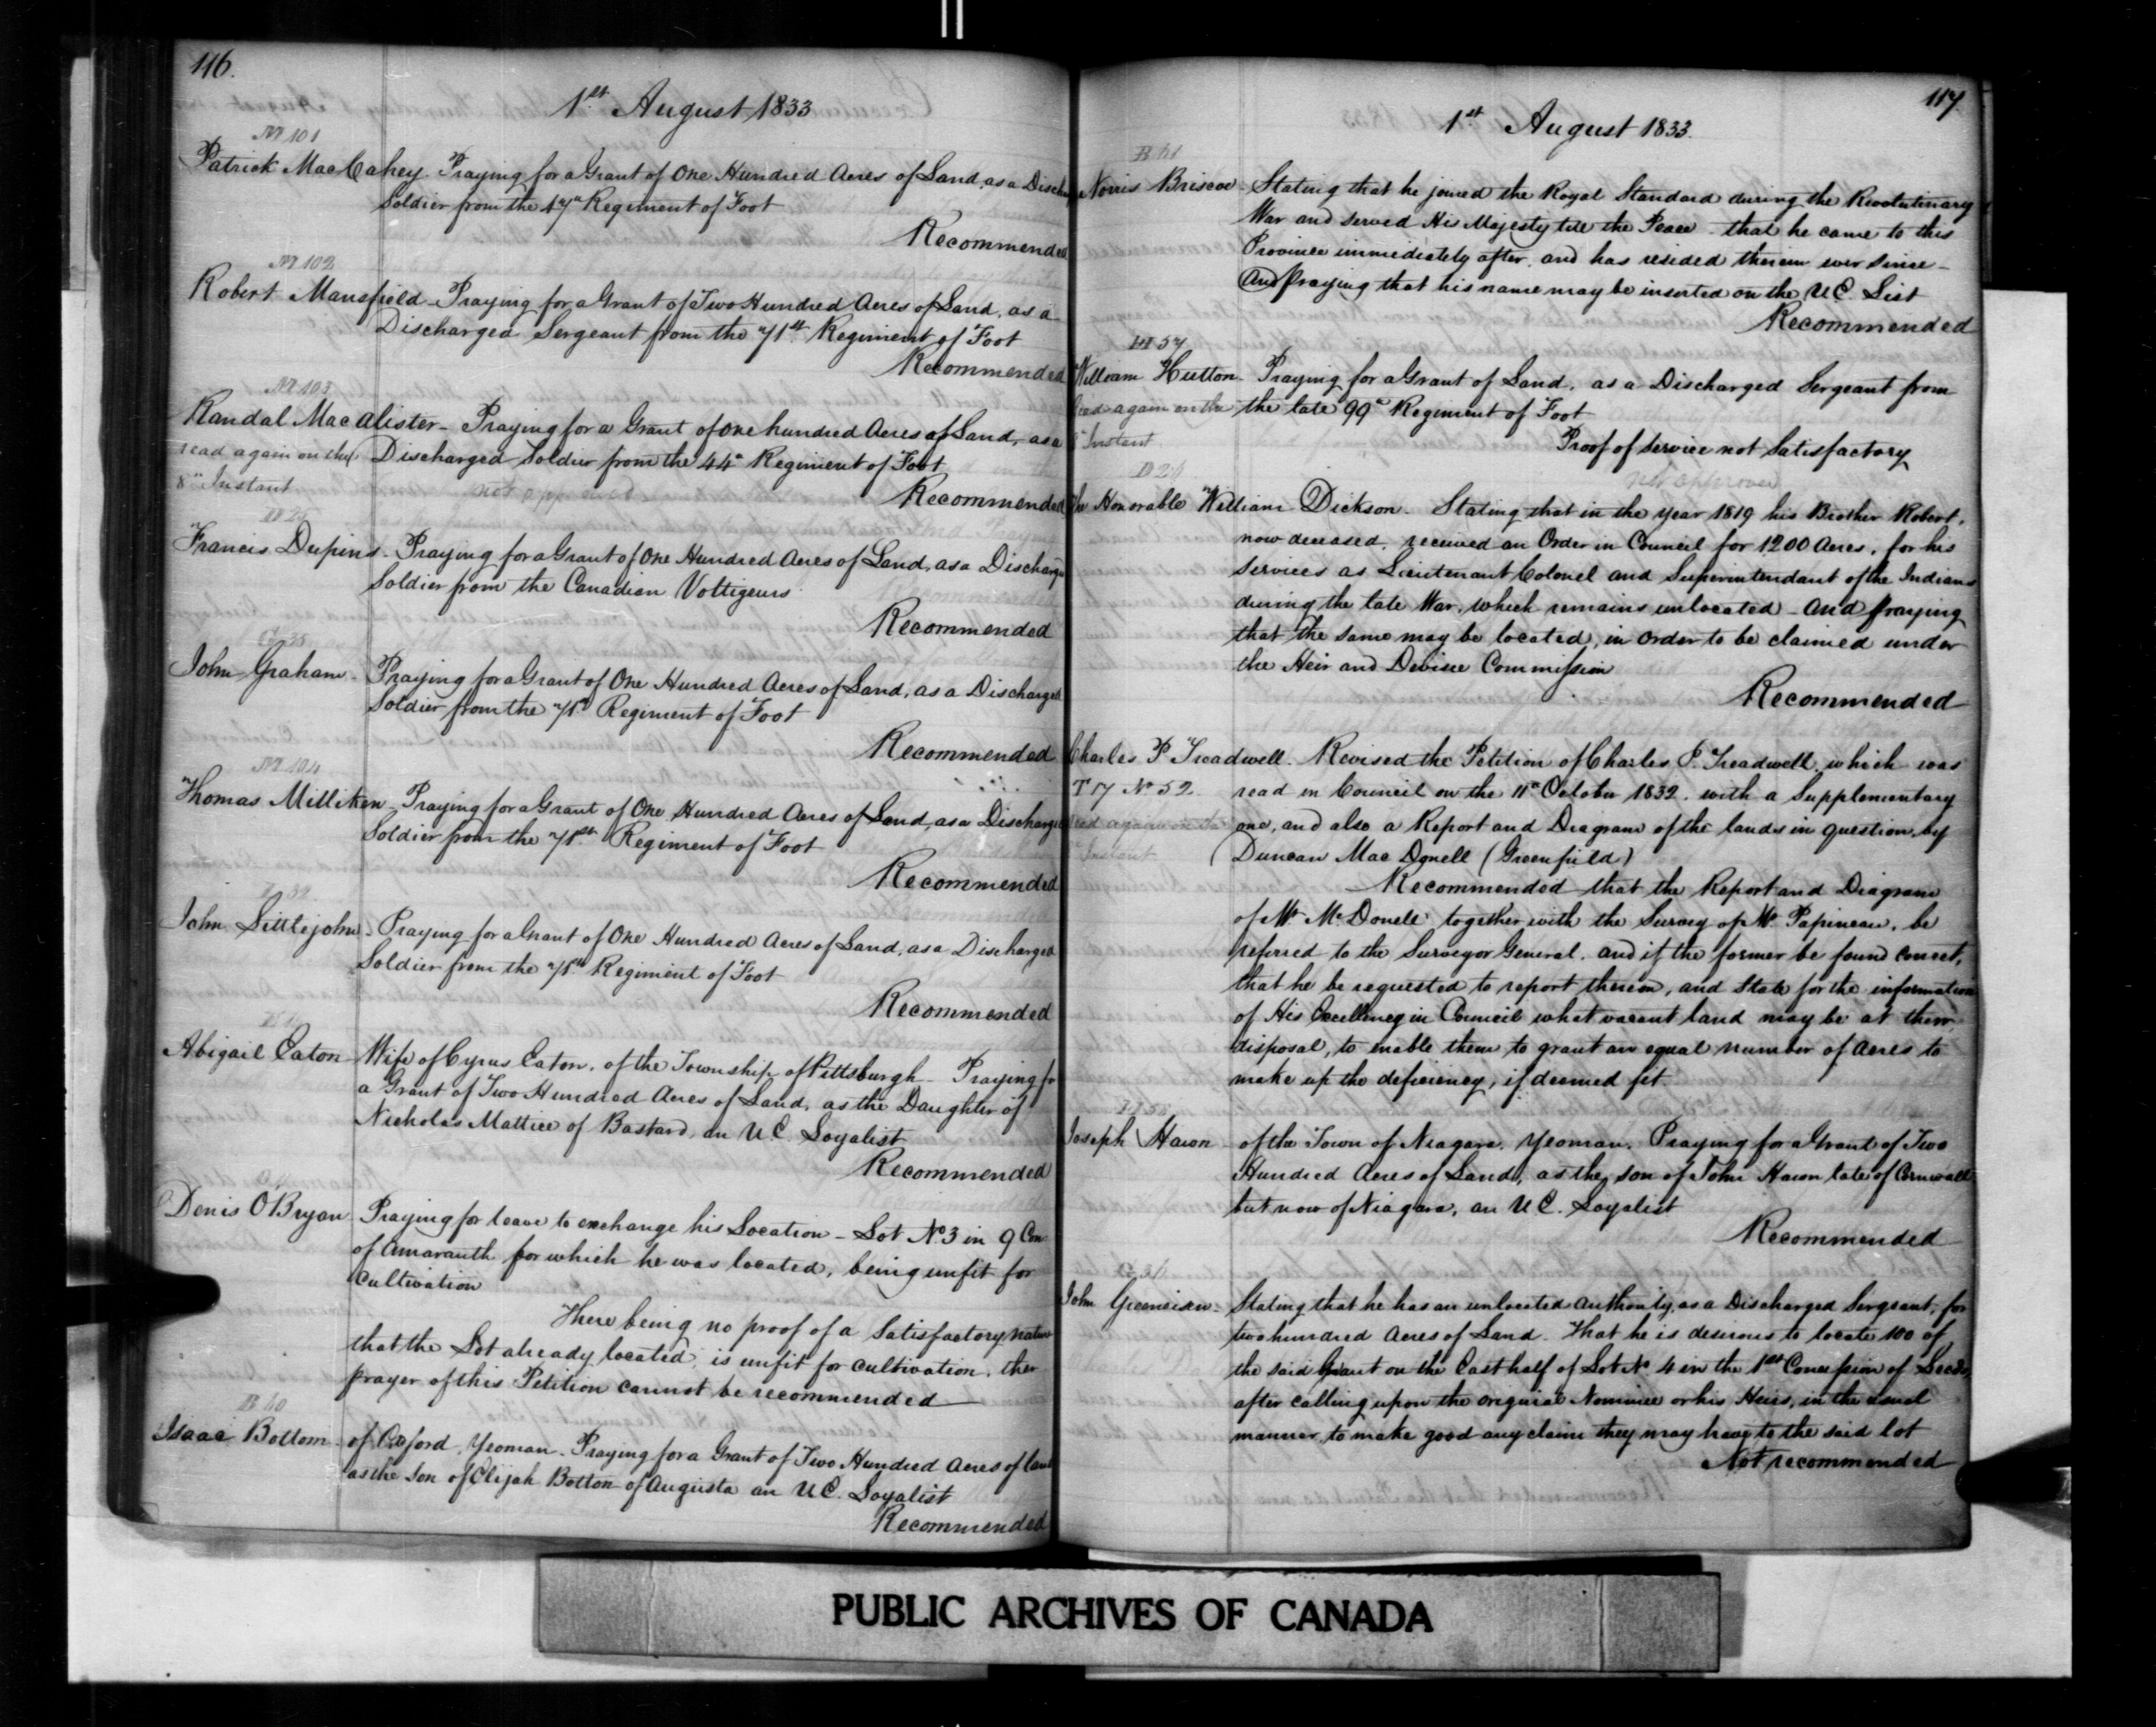 116.
1st August 1833
M 101
Patrick MacCahey. Praying for a Grant of One Hundred Acres of Land, as a
Soldier from the Regiment of Foot
Recommended
M 102
Robert Mansfield - Praying for a Grant of Two Hundred Acres of Land, as a
Discharged Sergeant from the 71st Regiment of Foot
Recommended
M 103
Randal MacAlister - Praying for a Grant of One hundred Acres of Land, as a
read again on the Discharged Soldier from the 44th Regiment of Foot
8th Instant not approved
Recommended
Francis Dupins - Praying for a Grant of One Hundred Acres of Land, as a Discharged
Soldier from the Canadian Voltigeurs
Recommended
G 35
John Graham - Praying for a Grant of One Hundred Acres of Land, as a Discharged
Soldier from the 71st Regiment of Foot
Recommended
M 104
Thomas Milliken - Praying for a Grant of One Hundred Acres of Land, as a Discharged
Soldier from the 71st Regiment of Foot
Recommended
John Littlejohn - Praying for a Grant of One Hundred Acres of Land, as a Discharged
Soldier from the 71st Regiment of Foot
Recommended
Abigail Eaton Wife of Cyrus Eaton, of the Township of Pittsburgh - Praying for
a Grant of Two Hundred Acres of Land, as the Daughter of
Nicholas Mattice of Bastard, an U E. Loyalist
Recommended
Denis O'Bryan Praying for leave to exchange his Location - Lot No 3 in 9 Con
of Amaranth for which he was located, being unfit for
Cultivation
There being no proof of a Satisfactory nature
that the Lot already located, is unfit for Cultivation, the
prayer of this Petition cannot be recommended
B 60
Isaac Bottom - of Oxford, Yeoman - Praying for a Grant of Two Hundred Acres of land
as the Son of Elijah Botton of Augusta an U E. Loyalist
Recommended
117.
1st August 1833.
B 61
Norris Briscoe - Stating that he joined the Royal Standard during the Revolutinary
War and served His Majesty till the Peace - that he came to this
Province immediately after, and has resided therein ever since -
And Praying that his name may be inserted on the U E. List
Recommended
H 57
William Hutton - Praying for a Grant of Land, as a Discharged Sergeant from
Read again on the the late 99th Regiment of Foot
Instant
Proof of service not Satisfactory
not approved
D 26
The Honorable William Dickson - Stating that in the year 1819 his Brother Robert,
now deceased, received an Order in Council for 1200 Acres, for his
Services as Lieutenant Colonel and Superintendant of the Indians
during the late War, which remains unlocated - and Praying
that the same may be located, in order to be claimed under
the Heir and Devisee Commission
Recommended
Charles P Treadwell. Revised the Petition of Charles P. Treadwell, which was
T 7 No 52 read in Council on the 11th October 1832. with a Supplementary
read again on the one, and also a Report and Diagram of the lands in question, by
Instant Duncan Mac Donell (Greenfield)
Recommended that the Report and Diagram
of Mr McDonell together with the Survey of Mr Papineau, be
referred to the Surveyor General, and if the former be found correct,
that he be requested to report thereon, and State for the information
of His Excellency in Council what vacant land may be at their
disposal, to enable them to grant an equal number of Acres to
make up the deficiency, if deemed fit
Joseph Hawn of the Town of Niagara. Yeoman. Praying for a Grant of Two
Hundred Acres of Land, as the son of John Hawn late of Cornwall
but now of Niagara, an U E. Loyalist
Recommended
G 36
John - Stating that he has an unlocated Authority, as a Discharged Sergeant, for
two hundred Acres of Land - That he is desirous to locate 100 of
the said Grant on the East half of Lot No 4 in the 1st Concession of Leeds,
after calling upon the original Nominee or his Heirs, in the usual
manner to make good any claim they may have to the said lot
Not recommended
PUBLIC ARCHIVES OF CANADA